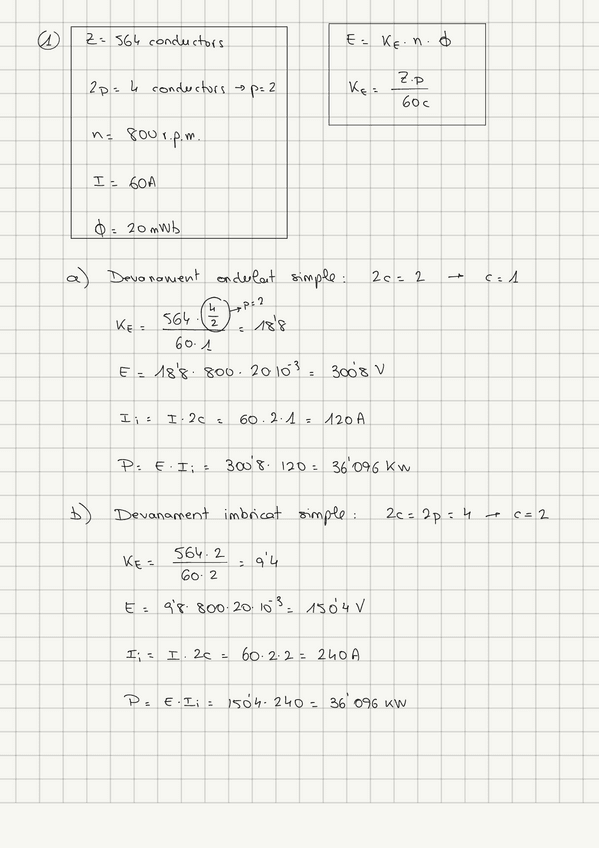 1
Z = 564 conductors
2p = 4 conductors → p=2
n = 800 r.p.m.
I = 60A
ϕ = 20 mWb
E = K_E · n · ϕ
K_E = Z·p / 60c
a) Devanament ondulat simple: 2c = 2 → c = 1
K_E = 564 · (4/2) / 60·1 = 18'8 → p=2
E = 18'8 · 800 · 20 10⁻³ = 300'8 V
I_i = I · 2c = 60 · 2·1 = 120 A
P = E · I_i = 300'8 · 120 = 36'096 KW
b) Devanament imbricat simple: 2c = 2p = 4 → c = 2
K_E = 564 · 2 / 60 · 2 = 9'4
E = 9'8 · 800 · 20 · 10⁻³ = 150'4 V
I_i = I · 2c = 60 · 2 · 2 = 240 A
P = E · I_i = 150'4 · 240 = 36'096 KW